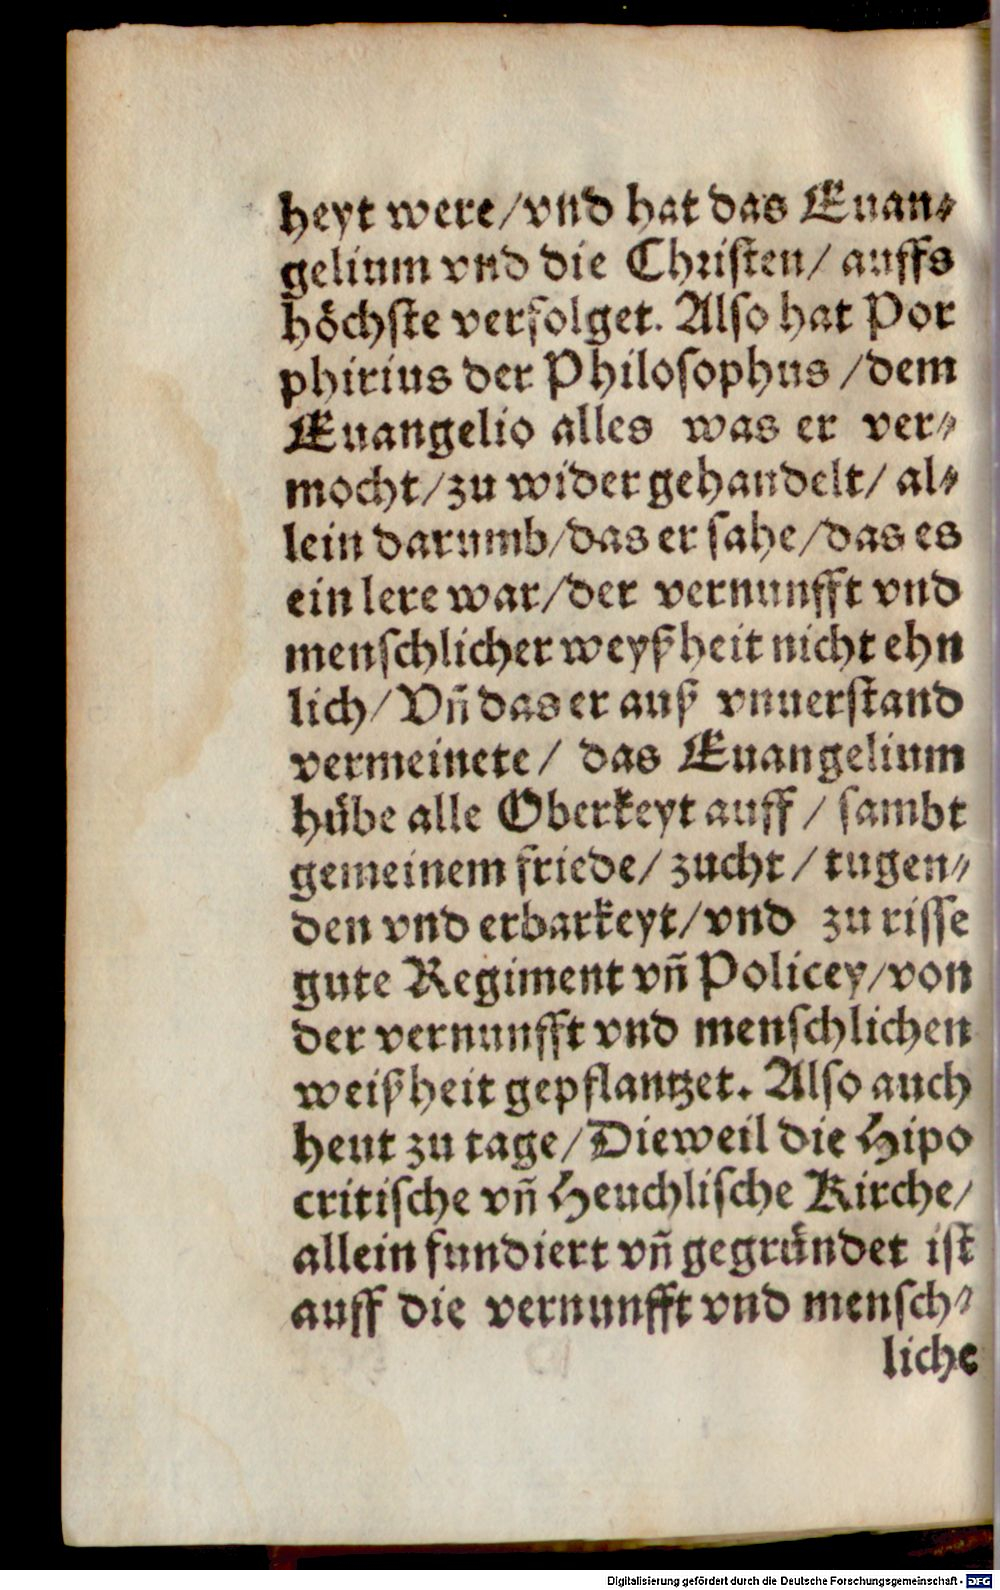 heyt were/vnd hat das Euan⸗
gelium vnd die Christen/ auffs
höchste verfolget. Also hat Por
phirius der Philosophus /dem
Euangelio alles was er ver⸗
mocht/zu wider gehandelt/ al⸗
lein darumb/das er sahe/das es
ein lere war/der vernunfft vnd
menschlicher weyßheit nicht ehn
lich/ Vñ das er auß vnuerstand
vermeinete/ das Euangelium
hübe alle Oberkeyt auff / sambt
gemeinem friede/ zucht / tugen⸗
den vnd erbarkeyt/vnd zu risse
gute Regiment vñ Policey/von
der vernunfft vnd menschlichen
weißheit gepflantzet. Also auch
heut zu tage/Dieweil die Hipo
critische vñ Heuchlische Kirche/
allein fundiert vñ gegründet ist
auff die vernunfft vnd mensch⸗
liche
Digitalisierung gefördert durch die Deutsche Forschungsgemeinschaft - DFG